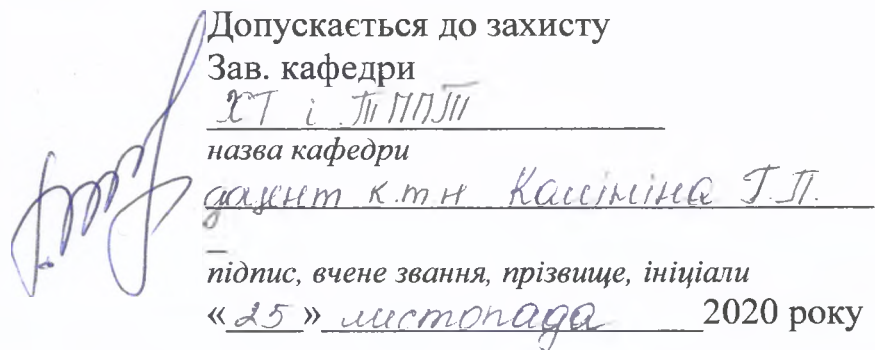 Допускається до захисту
Зав. кафедри
ХТ і ТППТ
назва кафедри
доцент к.т.н Калініна Т.П.
підпис, вчене звання, прізвище, ініціали
«25» листопада 2020 року